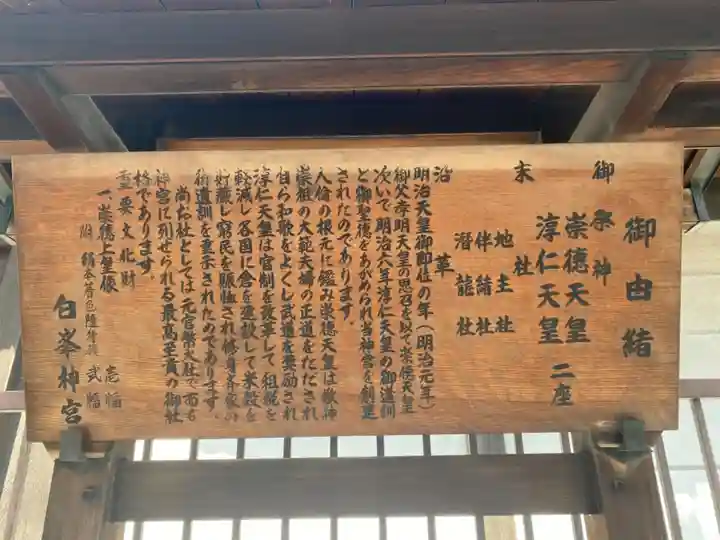 御由緒
御祭神
崇徳天皇
淳仁天皇
二座
末社
地主社
伴緒社
潜龍社
沿革
明治天皇御即位の年(明治元年)
御父孝明天皇の思召を以て崇徳天皇
次いで明治六年淳仁天皇の御遺訓
と御聖徳をあがめられ当神宮を創建
されたのであります。
人倫の根元に鑑み崇徳天皇は敬神
崇祖の大範夫婦の正道をただされ
自ら和歌をよくし武道を奨励され
淳仁天皇は官制を改革して租税を
軽減し各国に倉を建設して米穀を
貯蔵し窮民を賑恤され修身斉家の
御遺訓を垂示されたのであります。
尚お社としては元官幣大社で而も
神宮に列せられる最高至貴の御社
格であります。
重要文化財
一、崇徳上皇像 壱幅
附 絹本着色随身像 弐幅
白峯神宮